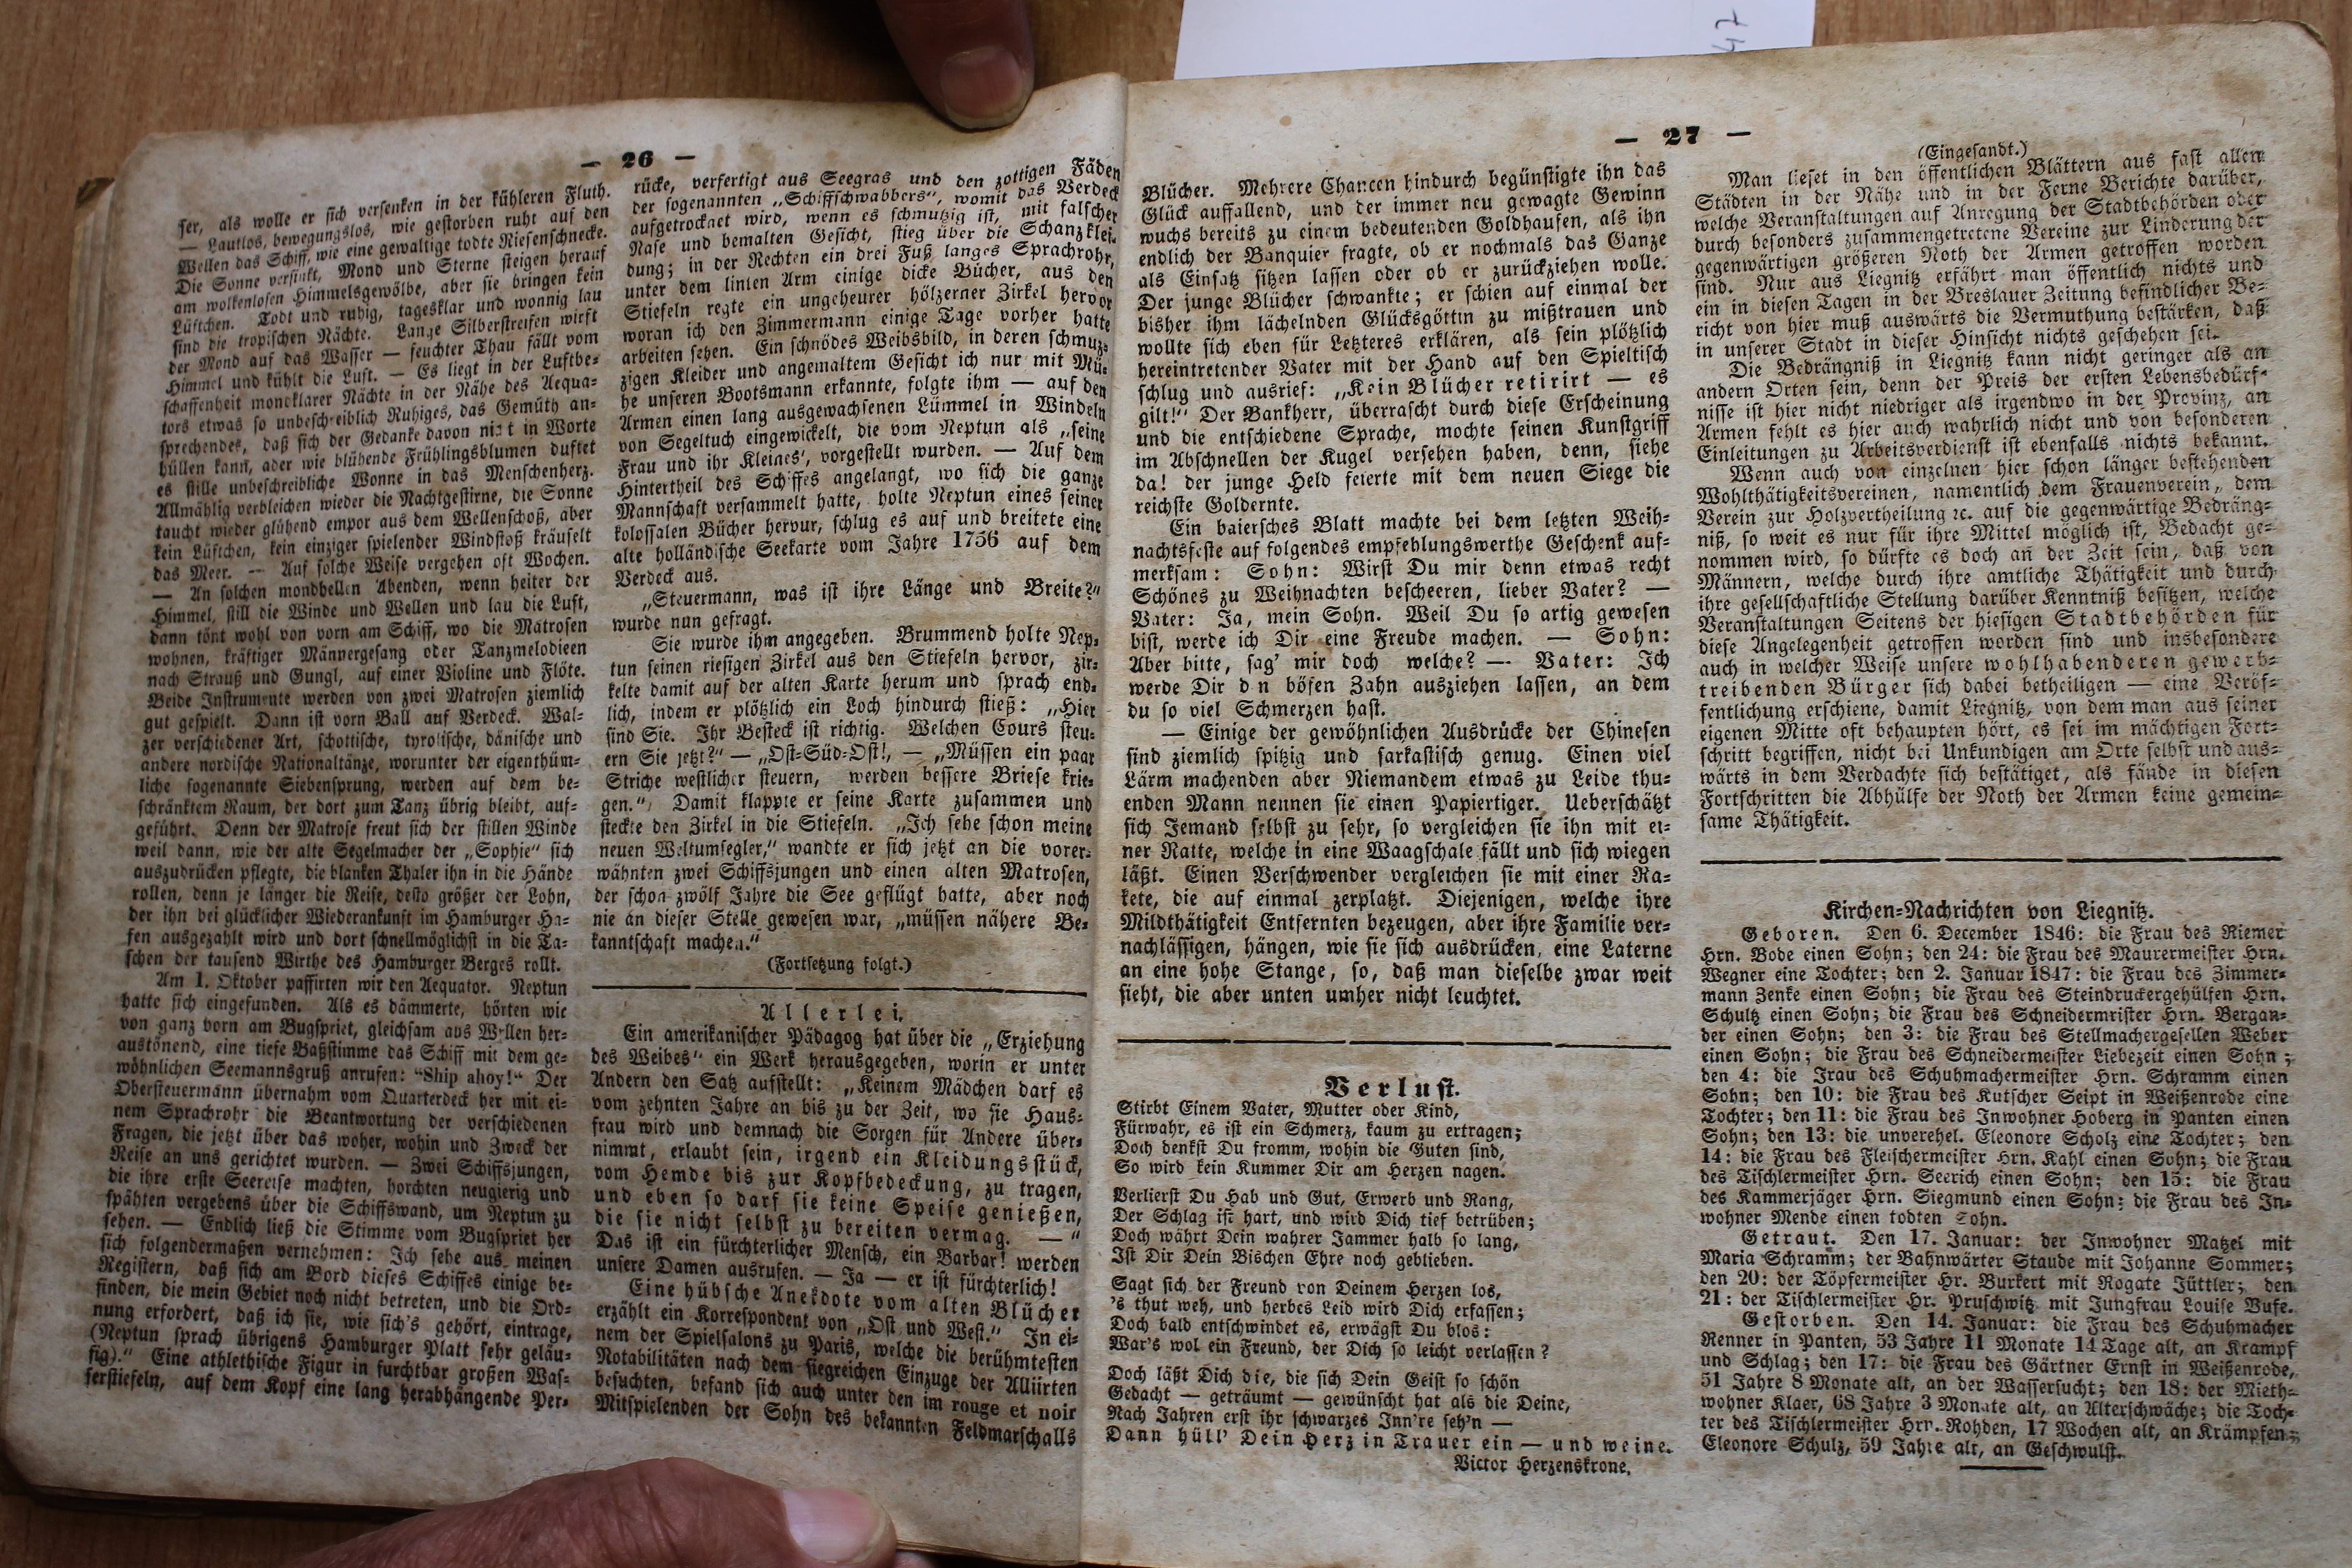 — 26 —
ser, als wolle er sich versenken in der kühleren Fluth.
— Lautlos, bewegungslos, wie gestorben ruht auf den
Wellen das Schiff, wie eine gewaltige todte Riesenschnecke.
Die Sonne versinkt, Mond und Sterne steigen herauf
am wolkenlosen Himmelsgewölbe, aber sie bringen kein
Lüftchen. Todt und ruhig, tagesklar und wonnig lau
sind die tropischen Nächte. Lange Silberstreifen wirft
der Mond auf das Wasser — feuchter Thau fällt vom
Himmel und kühlt die Luft. — Es liegt in der Luftbe-
schaffenheit mondklarer Nächte in der Nähe des Aequa-
tors etwas so unbeschreiblich Ruhiges, das Gemüth an-
sprechendes, daß sich der Gedanke davon nicht in Worte
hüllen kann, aber wie blühende Frühlingsblumen duftet
es stille unbeschreibliche Wonne in das Menschenherz.
Allmählig verbleichen wieder die Nachtgestirne, die Sonne
taucht wieder glühend empor aus dem Wellenschoß, aber
kein Lüftchen, kein einziger spielender Windstoß kräuselt
das Meer. — Auf solche Weise vergehen oft Wochen.
— An solchen mondhellen Abenden, wenn heiter der
Himmel, still die Winde und Wellen und lau die Luft,
dann tönt wohl von vorn am Schiff, wo die Matrosen
wohnen, kräftiger Männergesang oder Tanzmelodieen
nach Strauß und Gungl, auf einer Violine und Flöte.
Beide Instrumente werden von zwei Matrosen ziemlich
gut gespielt. Dann ist vorn Ball auf Verdeck. Wal-
zer verschiedener Art, schottische, tyrolische, dänische und
andere nordische Nationaltänze, worunter der eigenthüm-
liche sogenannte Siebensprung, werden auf dem be-
schränktem Raum, der dort zum Tanz übrig bleibt, auf-
geführt. Denn der Matrose freut sich der stillen Winde
weil dann, wie der alte Segelmacher der „Sophie“ sich
auszudrücken pflegte, die blanken Thaler ihn in die Hände
rollen, denn je länger die Reise, desto größer der Lohn,
der ihn bei glücklicher Wiederankunft im Hamburger Ha-
fen ausgezahlt wird und dort schnellmöglichst in die Ta-
schen der tausend Wirthe des Hamburger Berges rollt.
Am 1. Oktober passirten wir den Aequator. Neptun
hatte sich eingefunden. Als es dämmerte, hörten wir
von ganz vorn am Bugspriet, gleichsam aus Wellen her-
austönend, eine tiefe Baßstimme das Schiff mit dem ge-
wöhnlichen Seemannsgruß anrufen: “Ship ahoy!“ Der
Obersteuermann übernahm vom Quarterdeck her mit ei-
nem Sprachrohr die Beantwortung der verschiedenen
Fragen, die jetzt über das woher, wohin und Zweck der
Reise an uns gerichtet wurden. — Zwei Schiffsjungen,
die ihre erste Seereise machten, horchten neugierig und
spähten vergebens über die Schiffswand, um Neptun zu
sehen. — Endlich ließ die Stimme vom Bugspriet her
sich folgendermaßen vernehmen: Ich sehe aus meinen
Registern, daß sich am Bord dieses Schiffes einige be-
finden, die mein Gebiet noch nicht betreten, und die Ord-
nung erfordert, daß ich sie, wie sich's gehört, eintrage,
(Neptun sprach übrigens Hamburger Platt sehr geläu-
fig).“ Eine athlethische Figur in furchtbar großen Was-
serstiefeln, auf dem Kopf eine lang herabhängende Per-
rücke, verfertigt aus Seegras und den zottigen Fäden
der sogenannten „Schiffschwabbers“, womit das Verdeck
aufgetrocknet wird, wenn es schmutzig ist, mit falscher
Nase und bemalten Gesicht, stieg über die Schanzklei-
dung; in der Rechten ein drei Fuß langes Sprachrohr,
unter dem linken Arm einige dicke Bücher, aus den
Stiefeln ragte ein ungeheurer hölzerner Zirkel hervor
woran ich den Zimmermann einige Tage vorher hatte
arbeiten sehen. Ein schnödes Weibsbild, in deren schmuz-
zigen Kleider und angemaltem Gesicht ich nur mit Mü-
he unseren Bootsmann erkannte, folgte ihm — auf den
Armen einen lang ausgewachsenen Lümmel in Windeln
von Segeltuch eingewickelt, die vom Neptun als „seine
Frau und ihr Kleines', vorgestellt wurden. — Auf dem
Hintertheil des Schiffes angelangt, wo sich die ganze
Mannschaft versammelt hatte, holte Neptun eines seiner
kolossalen Bücher hervur, schlug es auf und breitete eine
alte holländische Seekarte vom Jahre 1756 auf dem
Verdeck aus.
„Steuermann, was ist ihre Länge und Breite?“
wurde nun gefragt.
Sie wurde ihm angegeben. Brummend holte Nep-
tun seinen riesigen Zirkel aus den Stiefeln hervor, zir-
kelte damit auf der alten Karte herum und sprach end-
lich, indem er plötzlich ein Loch hindurch stieß: „Hier
sind Sie. Ihr Besteck ist richtig. Welchen Cours steu-
ern Sie jetzt?“ — „Ost-Süd-Ost!, — „Müssen ein paar
Striche westlicher steuern, werden bessere Briefe krie-
gen.“ Damit klappte er seine Karte zusammen und
steckte den Zirkel in die Stiefeln. „Ich sehe schon meine
neuen Weltumsegler,“ wandte er sich jetzt an die vorer-
wähnten zwei Schiffsjungen und einen alten Matrosen,
der schon zwölf Jahre die See geflügt hatte, aber noch
nie an dieser Stelle gewesen war, „müssen nähere Be-
kanntschaft machen.“
(Fortsetzung folgt.)
Allerlei.
Ein amerikanischer Pädagog hat über die „Erziehung
des Weibes“ ein Werk herausgegeben, worin er unter
Andern den Satz aufstellt: „Keinem Mädchen darf es
vom zehnten Jahre an bis zu der Zeit, wo sie Haus-
frau wird und demnach die Sorgen für Andere über-
nimmt, erlaubt sein, irgend ein Kleidungsstück,
vom Hemde bis zur Kopfbedeckung, zu tragen,
und eben so darf sie keine Speise genießen,
die sie nicht selbst zu bereiten vermag. — “
Das ist ein fürchterlicher Mensch, ein Barbar! werden
unsere Damen ausrufen. — Ja — er ist fürchterlich!
Eine hübsche Anekdote vom alten Blücher
erzählt ein Korrespondent von „Ost und West.“ In ei-
nem der Spielsalons zu Paris, welche die berühmtesten
Notabilitäten nach dem siegreichen Einzuge der Alliirten
besuchten, befand sich auch unter den im rouge et noir
Mitspielenden der Sohn des bekannten Feldmarschalls
— 27 —
Blücher. Mehrere Chancen hindurch begünstigte ihn das
Glück auffallend, und der immer neu gewagte Gewinn
wuchs bereits zu einem bedeutenden Goldhaufen, als ihn
endlich der Banquier fragte, ob er nochmals das Ganze
als Einsatz sitzen lassen oder ob er zurückziehen wolle.
Der junge Blücher schwankte; er schien auf einmal der
bisher ihm lächelnden Glücksgöttin zu mißtrauen und
wollte sich eben für Letzteres erklären, als sein plötzlich
hereintretender Vater mit der Hand auf den Spieltisch
schlug und ausrief: „Kein Blücher retirirt — es
gilt!“ Der Bankherr, überrascht durch diese Erscheinung
und die entschiedene Sprache, mochte seinen Kunstgriff
im Abschnellen der Kugel versehen haben, denn, siehe
da! der junge Held feierte mit dem neuen Siege die
reichste Goldernte.
Ein baiersches Blatt machte bei dem letzten Weih-
nachtsfeste auf folgendes empfehlungswerthe Geschenk auf-
merksam: Sohn: Wirst Du mir denn etwas recht
Schönes zu Weihnachten bescheeren, lieber Vater? —
Vater: Ja, mein Sohn. Weil Du so artig gewesen
bist, werde ich Dir eine Freude machen. — Sohn:
Aber bitte, sag' mir doch welche? — Vater: Ich
werde Dir d n bösen Zahn ausziehen lassen, an dem
du so viel Schmerzen hast.
— Einige der gewöhnlichen Ausdrücke der Chinesen
sind ziemlich spitzig und sarkastisch genug. Einen viel
Lärm machenden aber Niemandem etwas zu Leide thu-
enden Mann nennen sie einen Papiertiger. Ueberschätzt
sich Jemand selbst zu sehr, so vergleichen sie ihn mit ei-
ner Ratte, welche in eine Waagschale fällt und sich wiegen
läßt. Einen Verschwender vergleichen sie mit einer Ra-
kete, die auf einmal zerplatzt. Diejenigen, welche ihre
Mildthätigkeit Entfernten bezeugen, aber ihre Familie ver-
nachlässigen, hängen, wie sie sich ausdrücken, eine Laterne
an eine hohe Stange, so, daß man dieselbe zwar weit
sieht, die aber unten umher nicht leuchtet.
Verlust.
Stirbt Einem Vater, Mutter oder Kind,
Fürwahr, es ist ein Schmerz, kaum zu ertragen;
Doch denkst Du fromm, wohin die Guten sind,
So wird kein Kummer Dir am Herzen nagen.
Verlierst Du Hab und Gut, Erwerb und Rang,
Der Schlag ist hart, und wird Dich tief betrüben;
Doch währt Dein wahrer Jammer halb so lang,
Ist Dir Dein Bischen Ehre noch geblieben.
Sagt sich der Freund von Deinem Herzen los,
's thut weh, und herbes Leid wird Dich erfassen;
Doch bald entschwindet es, erwägst Du blos:
War's wol ein Freund, der Dich so leicht verlassen?
Doch läßt Dich die, die sich Dein Geist so schön
Gedacht — geträumt — gewünscht hat als die Deine,
Nach Jahren erst ihr schwarzes Inn're seh'n —
Dann hüll' Dein Herz in Trauer ein — und weine.
Victor Herzenskrone.
(Eingesandt.)
Man lieset in den öffentlichen Blättern aus fast allen
Städten in der Nähe und in der Ferne Berichte darüber,
welche Veranstaltungen auf Anregung der Stadtbehörden oder
durch besonders zusammengetretene Vereine zur Linderung der
gegenwärtigen größeren Noth der Armen getroffen worden
sind. Nur aus Liegnitz erfährt man öffentlich nichts und
ein in diesen Tagen in der Breslauer Zeitung befindlicher Be-
richt von hier muß auswärts die Vermuthung bestärken, daß
in unserer Stadt in dieser Hinsicht nichts geschehen sei.
Die Bedrängniß in Liegnitz kann nicht geringer als an
andern Orten sein, denn der Preis der ersten Lebensbedürf-
nisse ist hier nicht niedriger als irgendwo in der Provinz, an
Armen fehlt es hier auch wahrlich nicht und von besonderen
Einleitungen zu Arbeitsverdienst ist ebenfalls nichts bekannt.
Wenn auch von einzelnen hier schon länger bestehenden
Wohlthätigkeitsvereinen, namentlich dem Frauenverein, dem
Verein zur Holzvertheilung ꝛc. auf die gegenwärtige Bedräng-
niß, so weit es nur für ihre Mittel möglich ist, Bedacht ge-
nommen wird, so dürfte es doch an der Zeit sein, daß von
Männern, welche durch ihre amtliche Thätigkeit und durch
ihre gesellschaftliche Stellung darüber Kenntniß besitzen, welche
Veranstaltungen Seitens der hiesigen Stadtbehörden für
diese Angelegenheit getroffen worden sind und insbesondere
auch in welcher Weise unsere wohlhabenderen gewerb-
treibenden Bürger sich dabei betheiligen — eine Veröf-
fentlichung erschiene, damit Liegnitz, von dem man aus seiner
eigenen Mitte oft behaupten hört, es sei im mächtigen Fort-
schritt begriffen, nicht bei Unkundigen am Orte selbst und aus-
wärts in dem Verdachte sich bestätiget, als fände in diesen
Fortschritten die Abhülfe der Noth der Armen keine gemein-
same Thätigkeit.
Kirchen-Nachrichten von Liegnitz.
Geboren. Den 6. December 1846: die Frau des Riemer
Hrn. Bode einen Sohn; den 24: die Frau des Maurermeister Hrn.
Wegner eine Tochter; den 2. Januar 1847: die Frau des Zimmer-
mann Zenke einen Sohn; die Frau des Steindruckergehülfen Hrn.
Schultz einen Sohn; die Frau des Schneidermrister Hrn. Bergan-
der einen Sohn; den 3: die Frau des Stellmachergesellen Weber
einen Sohn; die Frau des Schneidermeister Liebezeit einen Sohn;
den 4: die Frau des Schuhmachermeister Hrn. Schramm einen
Sohn; den 10: die Frau des Kutscher Seipt in Weißenrode eine
Tochter; den 11: die Frau des Inwohner Hoberg in Panten einen
Sohn; den 13: die unverehel. Eleonore Scholz eine Tochter; den
14: die Frau des Fleischermeister Hrn. Kahl einen Sohn; die Frau
des Tischlermeister Hrn. Seerich einen Sohn; den 15: die Frau
des Kammerjäger Hrn. Siegmund einen Sohn; die Frau des In-
wohner Mende einen todten Sohn.
Getraut. Den 17. Januar: der Inwohner Matzel mit
Maria Schramm; der Bahnwärter Staude mit Johanne Sommer;
den 20: der Töpfermeister Hr. Burkert mit Rogate Jüttler; den
21: der Tischlermeister Hr. Pruschwitz mit Jungfrau Louise Bufe.
Gestorben. Den 14. Januar: die Frau des Schuhmacher
Renner in Panten, 53 Jahre 11 Monate 14 Tage alt, an Krampf
und Schlag; den 17: die Frau des Gärtner Ernst in Weißenrode,
51 Jahre 8 Monate alt, an der Wassersucht; den 18: der Mieth-
wohner Klaer, 68 Jahre 3 Monate alt, an Alterschwäche; die Toch-
ter des Tischlermeister Hrn. Rohden, 17 Wochen alt, an Krämpfen;
Eleonore Schulz, 59 Jahre alt, an Geschwulst.